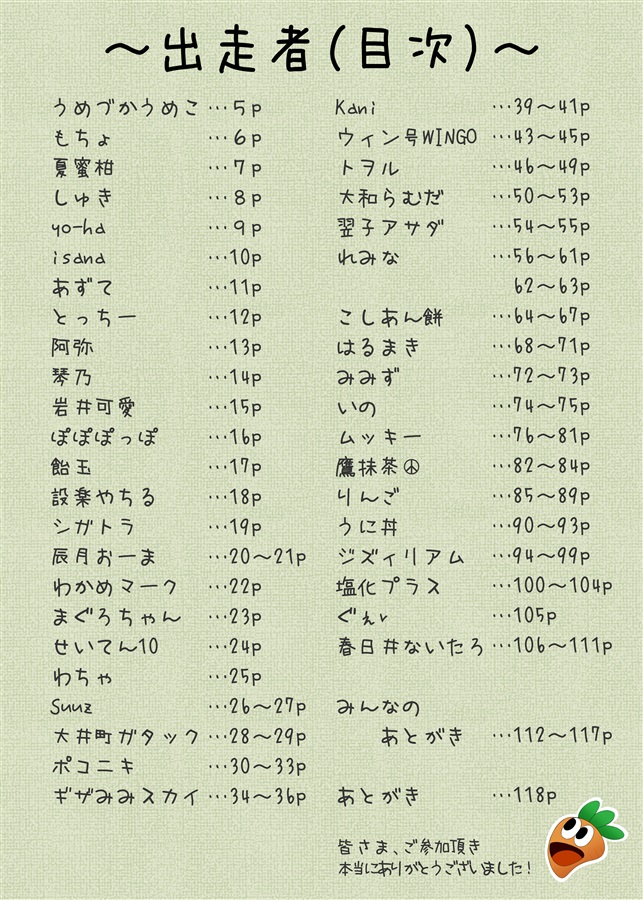 ～出走者(目次)～
うめづかうめこ…5p
もちょ…6p
夏蜜柑…7p
しゅき…8p
yo-ha…9p
isana…10p
あずて…11p
とっちー…12p
阿弥…13p
琴乃…14p
岩井可愛…15p
ぽぽぽっぽ…16p
飴玉…17p
設楽やちる…18p
シガトラ…19p
辰月おーま…20～21p
わかめマーク…22p
まぐろちゃん…23p
せいてん10…24p
わちゃ…25p
Suuz…26～27p
大井町ガタック…28～29p
ポコニキ…30～33p
ギザみみスカイ…34～36p
Kani…39～41p
ウィン号WINGO…43～45p
トヲル…46～49p
大和らむだ…50～53p
翌子アサダ…54～55p
れみな…56～61p
62～63p
こしあん餅…64～67p
はるまき…68～71p
みみず…72～73p
いの…74～75p
ムッキー…76～81p
鷹抹茶☮…82～84p
りんご…85～89p
うに丼…90～93p
ジズィリアム…94～99p
塩化プラス…100～104p
ぐえv…105p
春日井ないたろ…106～111p
みんなの
あとがき…112～117p
あとがき…118p
皆さま、ご参加頂き
本当にありがとうございました！